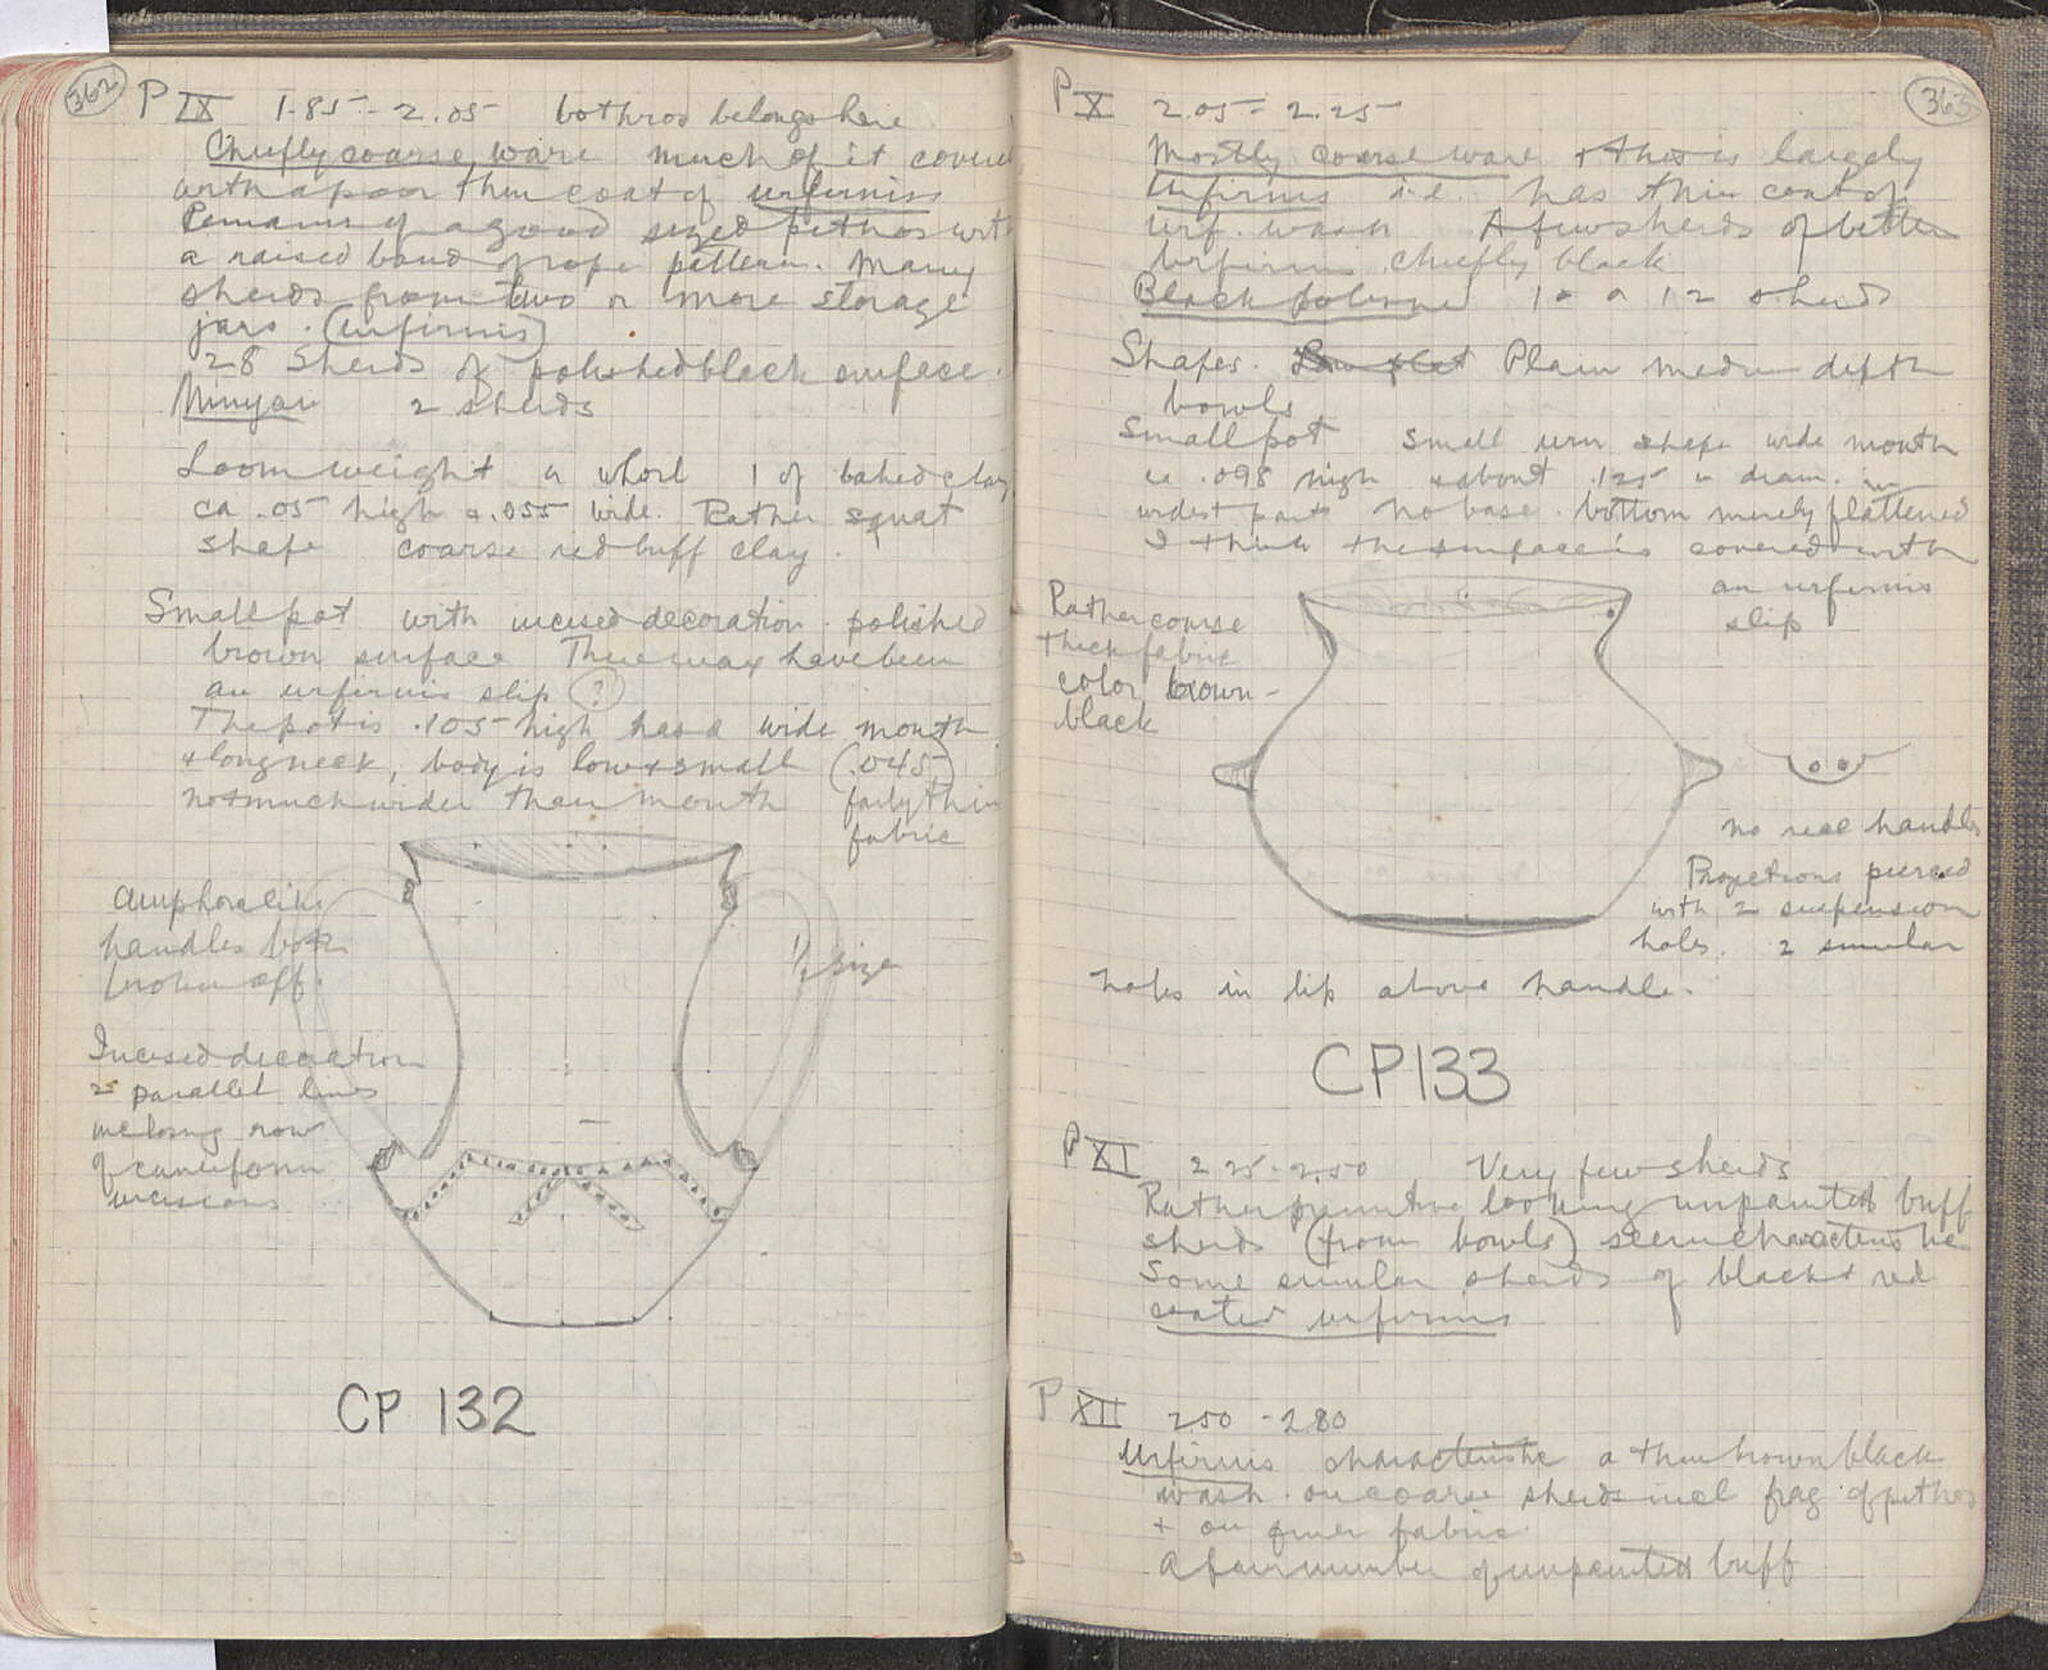 362
P IX 1.85 - 2.05 bothros belongs here
Chiefly coarse ware much of it covered
with a poor thin coat of urfirnis
Remains of a good sized pithos with
a raised band of rope pattern. Many
sherds from two or more storage
jars. (urfirnis)
28 Sherds of polished black surface.
Minyan 2 sherds
Loomweight or whorl 1 of baked clay
ca .05 high + .055 wide. Rather squat
shape coarse red buff clay.
Small pot with incised decoration. polished
brown surface There may have been
an urfirnis slip (?)
The pot is .105 high has a wide mouth
+ long neck, body is low + small (.045)
not much wider than mouth fairly thin
fabric
Amphora like
handles both
broken off.
1/2 size
Incised decoration
2 parallel lines
inclosing row
of cuneiform
incisions
CP 132
363
P X 2.05 - 2.25
Mostly coarse ware + this is largely
Urfirnis i.e. has thin coat of
urf. wash A few sherds of better
Urfirnis chiefly black
Black polished 10 or 12 sherds
Shapes. Plain medium depth
bowls
Small pot small urn shape wide mouth
ca .098 high + about .125 in diam. in
widest part No base. bottom merely flattened
I think the surface is covered with
an urfirnis
slip
Rather coarse
thick fabric
color brown-
black
no real handles
Projections pierced
with 2 suspension
holes. 2 similar
holes in lip above handle.
CP133
P XI 2.25 - 2.50 Very few sherds
Rather primitive looking unpainted buff
sherds (from bowls) seem characteristic
Some similar sherds of black + red
coated urfirnis
P XII 2.50 - 2.80
Urfirnis characteristic a thin brown black
wash on coarse sherds incl frag of pithos
+ on finer fabric
A fair number of unpainted buff